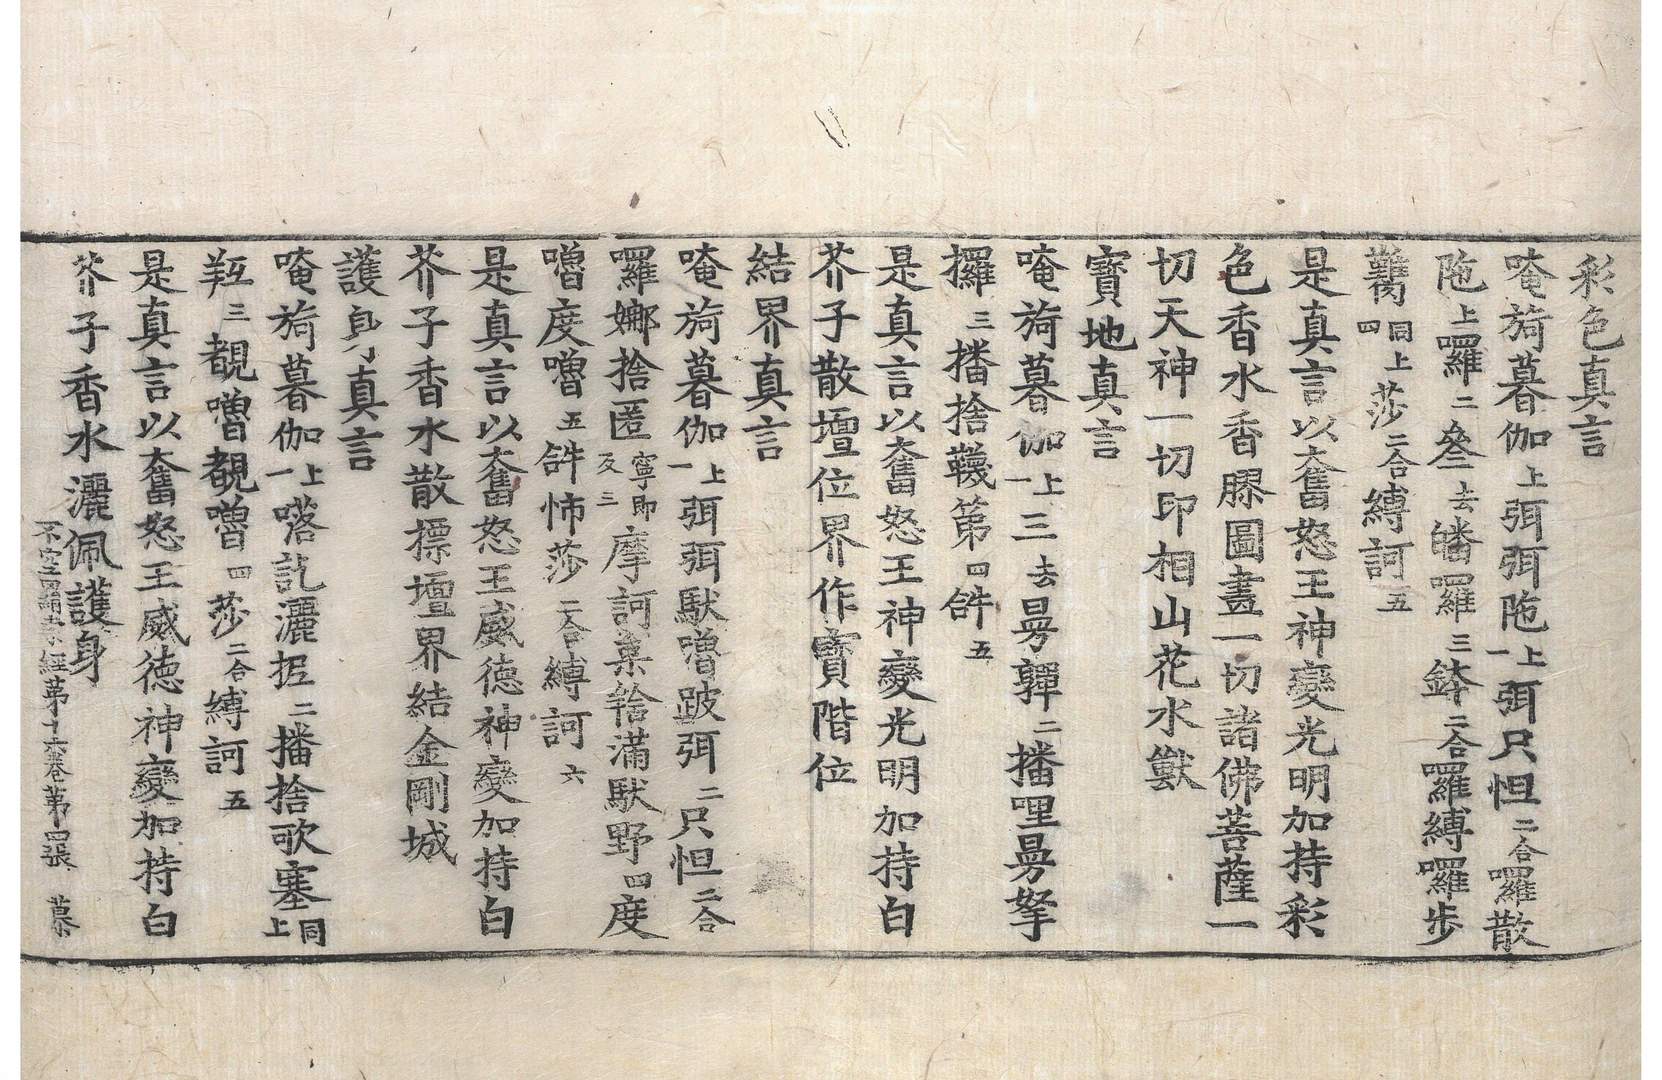 彩色真言
唵旖暮伽上弭弭陁陁上一弭只怛二合囉散
陁上囉二叄去皤囉三鉢二合囉縛囉步
同上四莎二合縛訶五
是真言以奮怒王神變光明加持彩
色香水香膠圖畫一切諸佛菩薩一
切天神一切印相山花水獸
寶地真言
唵旖暮伽上一三去曼彈二播哩曼拏
攞三播捨韈第四𤙖五
是真言以奮怒王神變光明加持白
芥子散壇位界作寶階位
結界真言
唵旖暮伽上一弭弭馱嚕跛弭二只怛二合
囉娜捨匿寧即反三摩訶菓幹滿馱野四度
嚕度嚕五𤙖怖莎二合縛訶六
是真言以奮怒王威德神變加持白
芥子香水散摽壇界結金剛城
護身真言
唵旖暮伽上一嗠訖灑抳二播捨歌塞同上
羝三覩嚕覩嚕四莎二合縛訶五
是真言以奮怒王威德神變加持白
芥子香水灑佩護身
不空羂索經第十六卷第四張 慕